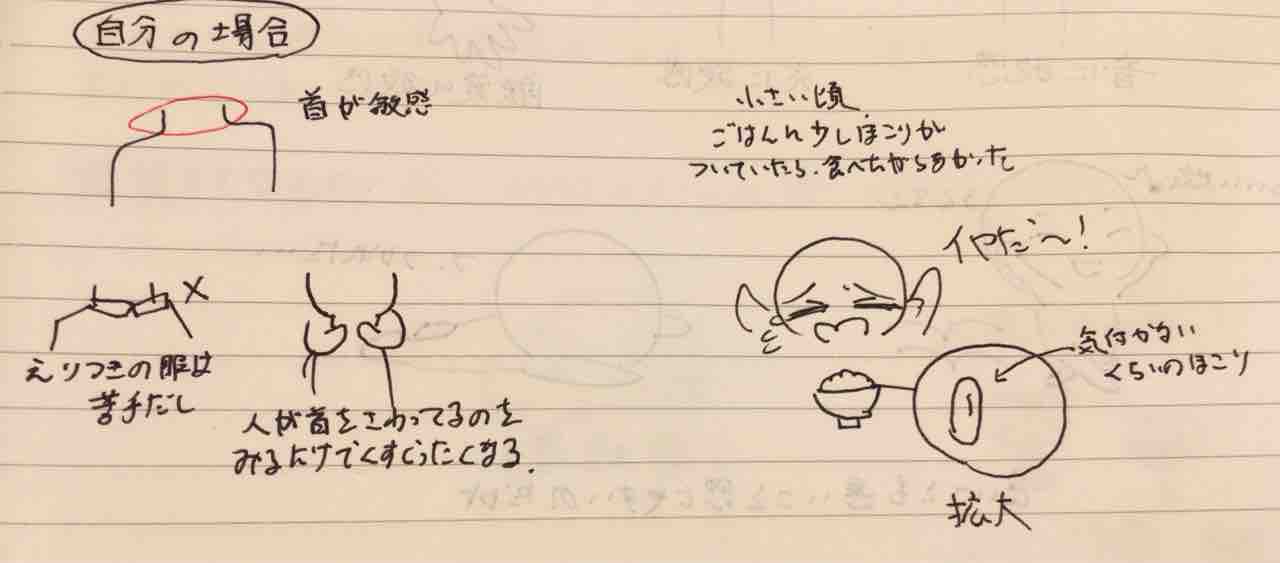 自分の場合
首が敏感
えりつきの服は
苦手だし
人が首をさわってるのを
みるだけでくすぐったくなる.
小さい頃
ごはんに少しほこりが
ついていたら、食べたがらなかった
イヤだ〜!
気付かない
くらいのほこり
拡大